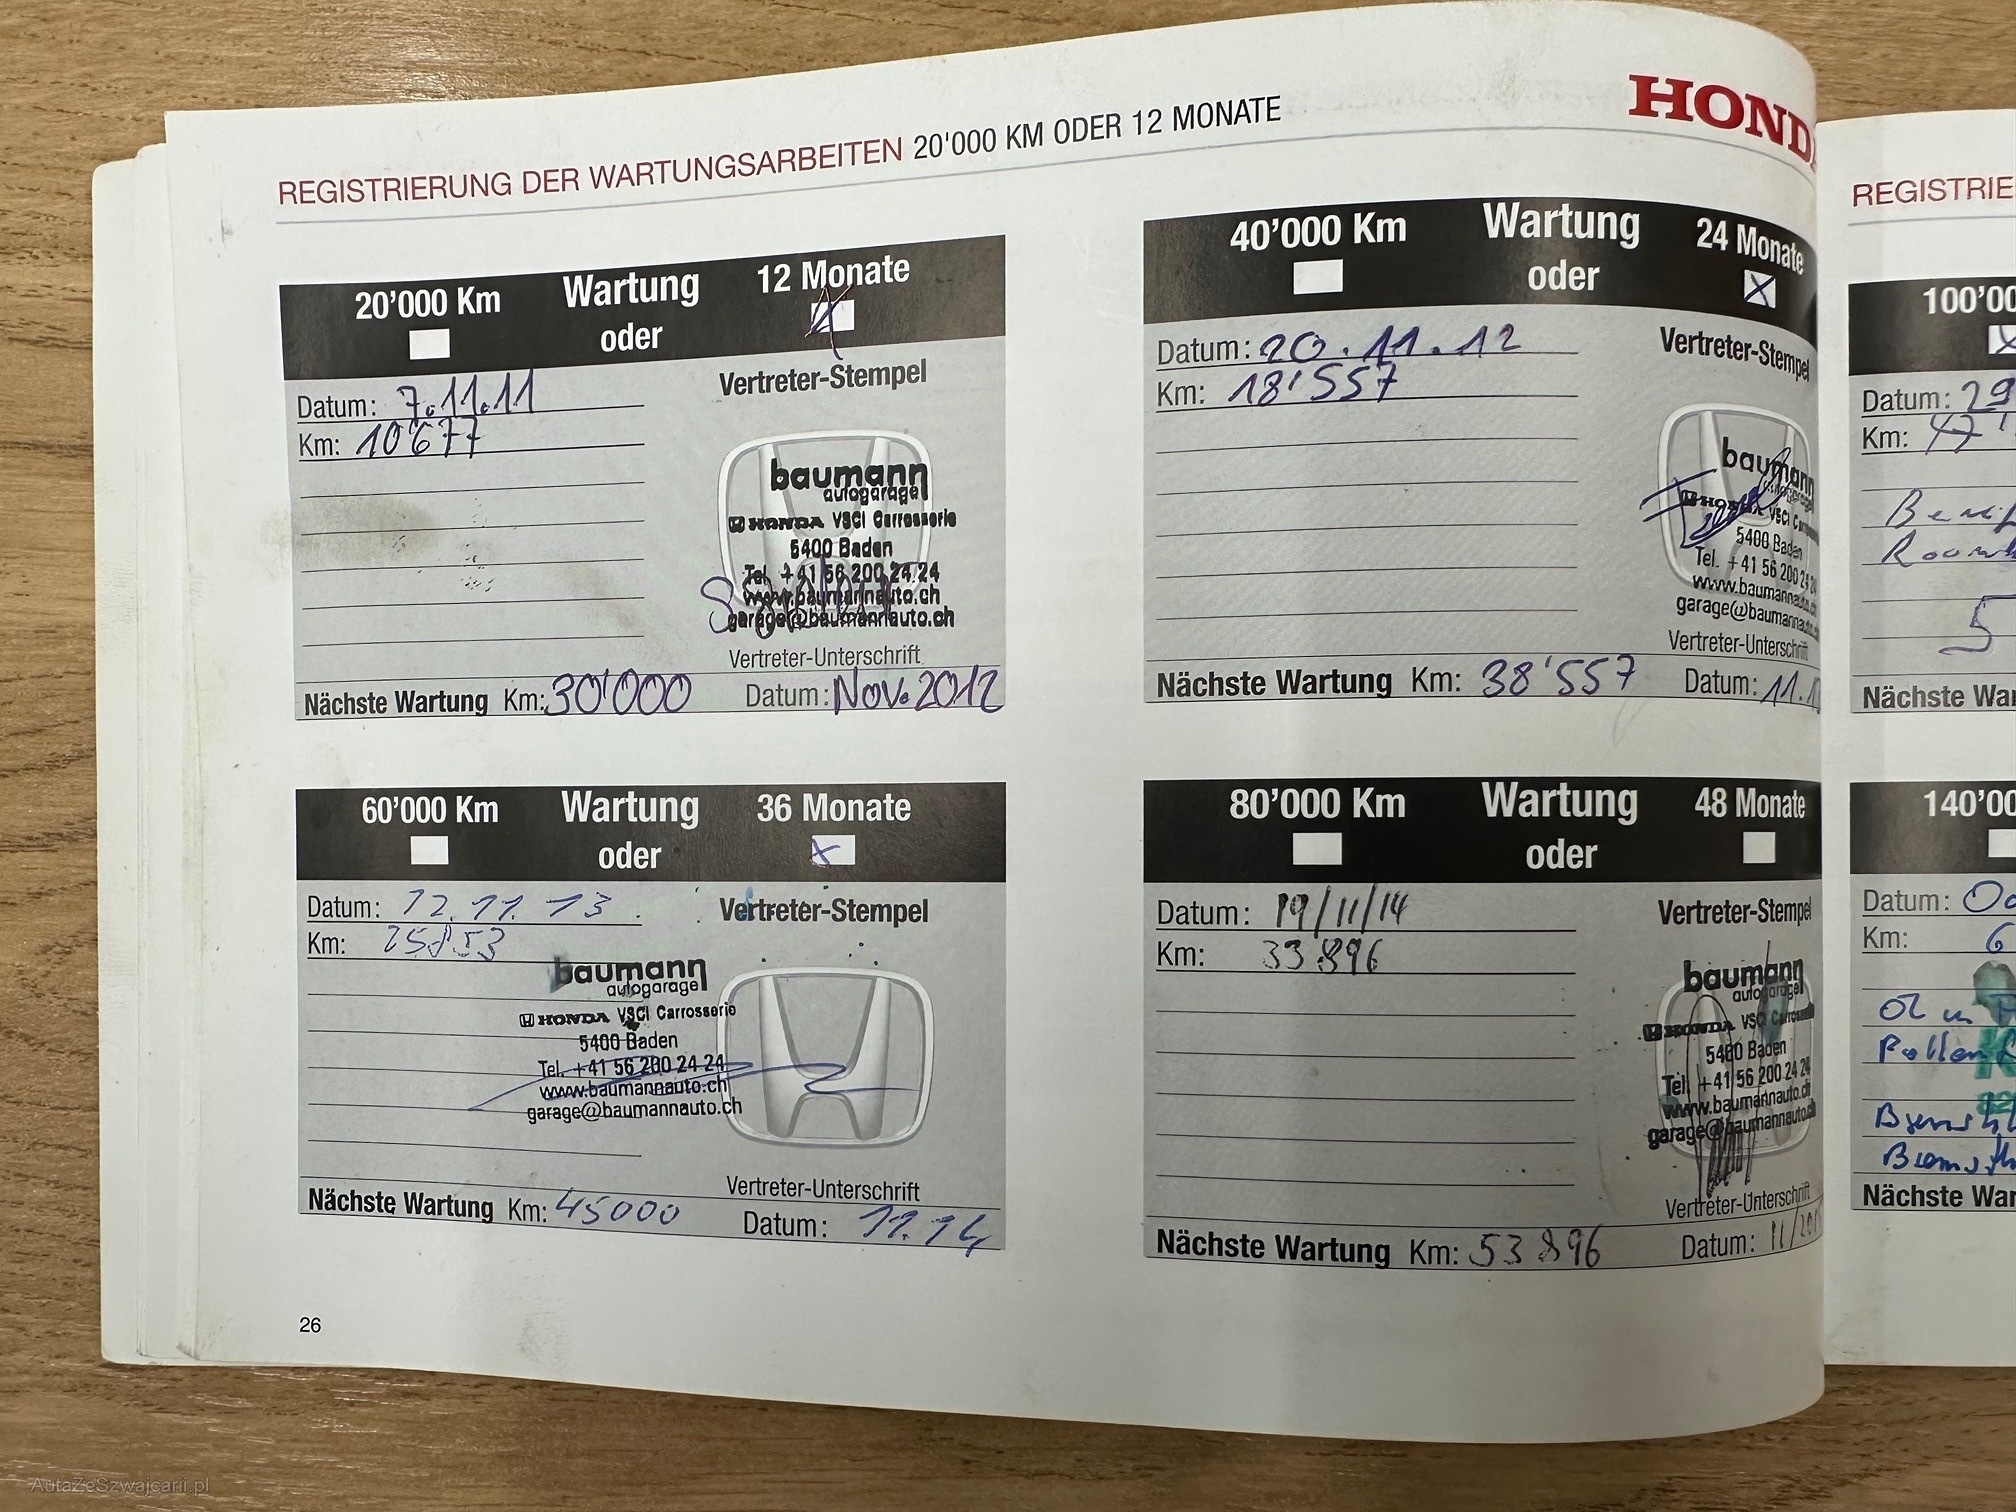 REGISTRIERUNG DER WARTUNGSARBEITEN 20'000 KM ODER 12 MONATE
HONDA
20'000 Km Wartung oder 12 Monate
Datum: 7.11.11
Km: 10'677
Vertreter-Stempel
baumann
autogarage
HONDA VSCI Carrosserie
5400 Baden
Tel. +41 56 200 24 24
www.baumannauto.ch
garage@baumannauto.ch
Vertreter-Unterschrift
Nächste Wartung Km: 30'000 Datum: Nov. 2012
40'000 Km Wartung oder 24 Monate
Datum: 20.11.12
Km: 18'557
Vertreter-Stempel
baumann
autogarage
HONDA VSCI
5400 Baden
Tel. +41 56 200 24
www.baumannauto.
garage@baumannauto.
Vertreter-Unterschrift
Nächste Wartung Km: 38'557 Datum: 11.
60'000 Km Wartung oder 36 Monate
Datum: 12.11.13.
Km: 25853
Vertreter-Stempel
baumann
autogarage
HONDA VSCI Carrosserie
5400 Baden
Tel. +41 56 200 24 24
www.baumannauto.ch
garage@baumannauto.ch
Vertreter-Unterschrift
Nächste Wartung Km: 45000 Datum: 11.14
80'000 Km Wartung oder 48 Monate
Datum: 19/11/14
Km: 33896
Vertreter-Stempel
baumann
autogarage
HONDA VSCI Carrosserie
5400 Baden
Tel. +41 56 200 24 24
www.baumannauto.ch
garage@baumannauto.ch
Vertreter-Unterschrift
Nächste Wartung Km: 53896 Datum: 11/
26
REGISTRIE
100'00
Datum: 29
Km: 47'
5
Nächste War
140'00
Datum:
Km: 6
Nächste War
AutaZeSzwajcarii.pl